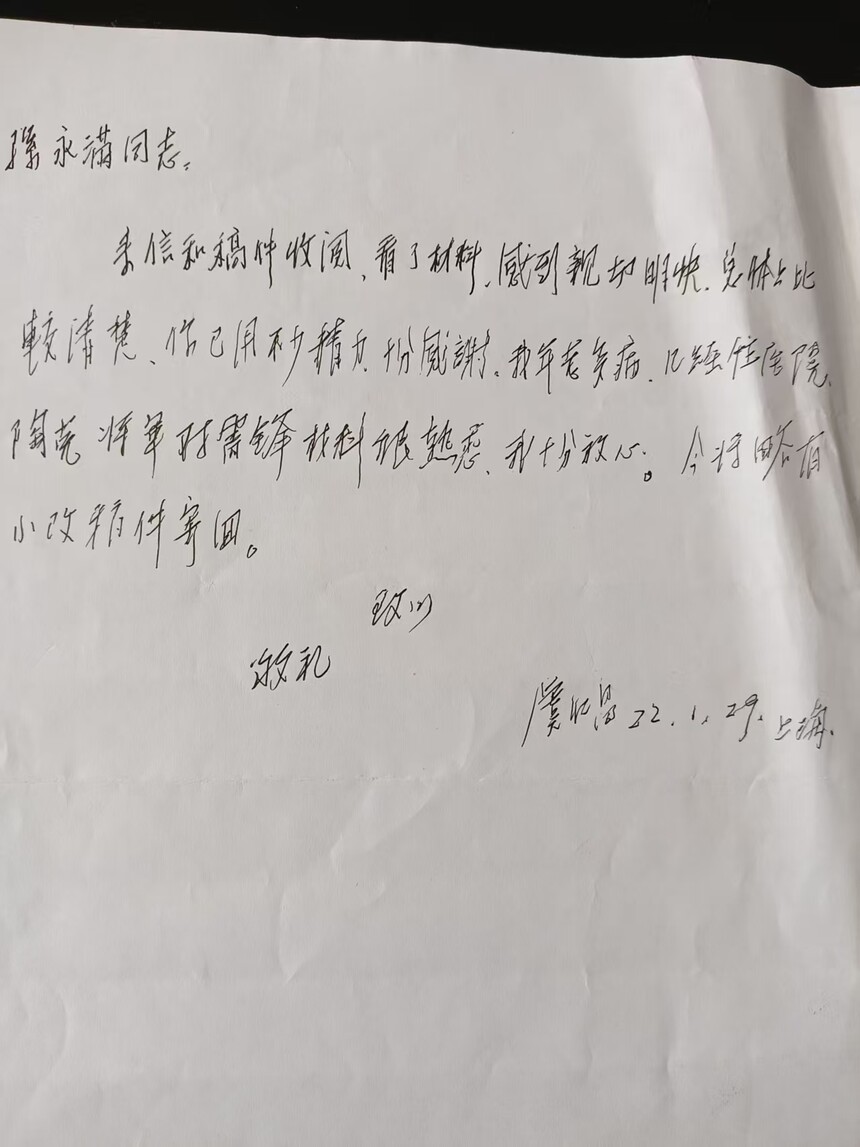 孫永满同志:
来信和稿件收阅、看了材料、感到親切明快、总体上比
較清楚、你已用不少精力、十分感謝、我年老多病、已经住医院、
陶克将軍对雷锋材料很熟悉、我十分放心。今将略有
小改稿件寄回。
致以
敬礼
虞仁昌 22.1.29.上海.